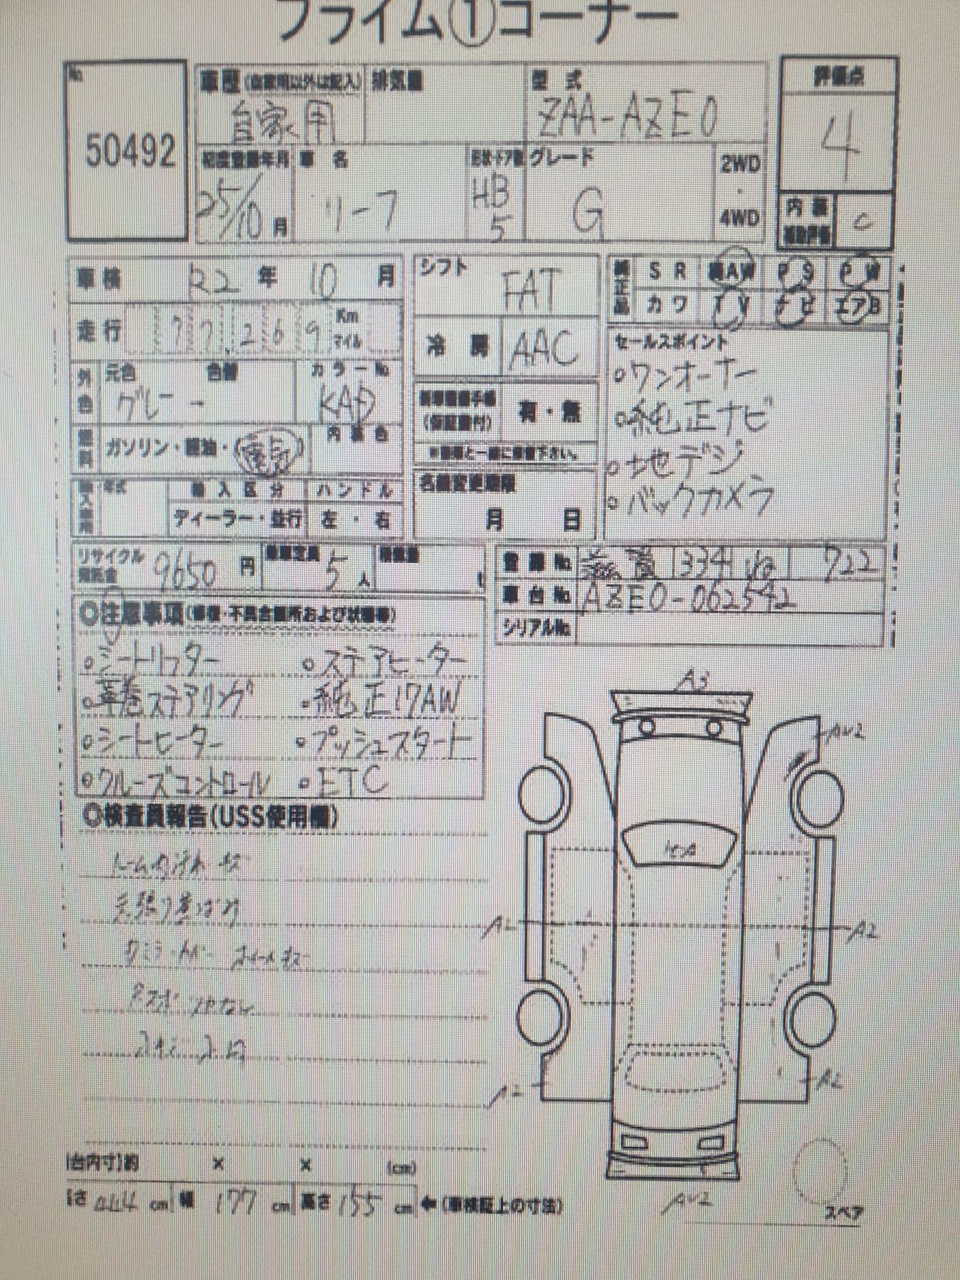 プライム①コーナー
No. 50492
車歴(自家用以外は記入) 自家用
排気量
型式 ZAA-AZE0
評価点 4
初度登録年月 25/10月
車名 リーフ
形状・ドア数 HB 5
グレード G
2WD・4WD
内装補助評価 C
車検 R2年 10月
シフト FAT
純正品 SR AW PS PW
カワ TV ナビ エアB
走行 77,269 Km マイル
冷房 AAC
セールスポイント
○ワンオーナー
○純正ナビ
○地デジ
○バックカメラ
外色 元色 グレー 色替 カラーNo. KAD
新車整備手帳(保証書付) 有・無
※書類と一緒に保管下さい。
燃料 ガソリン・軽油・電気 内装色
名義変更期限 月 日
輸入車用 年式 輸入区分 ディーラー・並行 ハンドル 左・右
リサイクル預託金 9650円
乗車定員 5人
積載量 t
登録No. 334 722
車台No. AZE0-062542
シリアルNo.
◎注意事項(修復・不具合箇所および状態等)
○シートリフター ○ステアヒーター
○革巻ステアリング ○純正17AW
○シートヒーター ○プッシュスタート
○クルーズコントロール ○ETC
◎検査員報告(USS使用欄)
ルーム内汚れ キズ
天張り黄ばみ
A3
AU2
A2
A2
A2
A2
AU2
スペア
[台内寸]約 × × (cm)
長さ 444 cm 幅 177 cm 高さ 155 cm ←(車検証上の寸法)